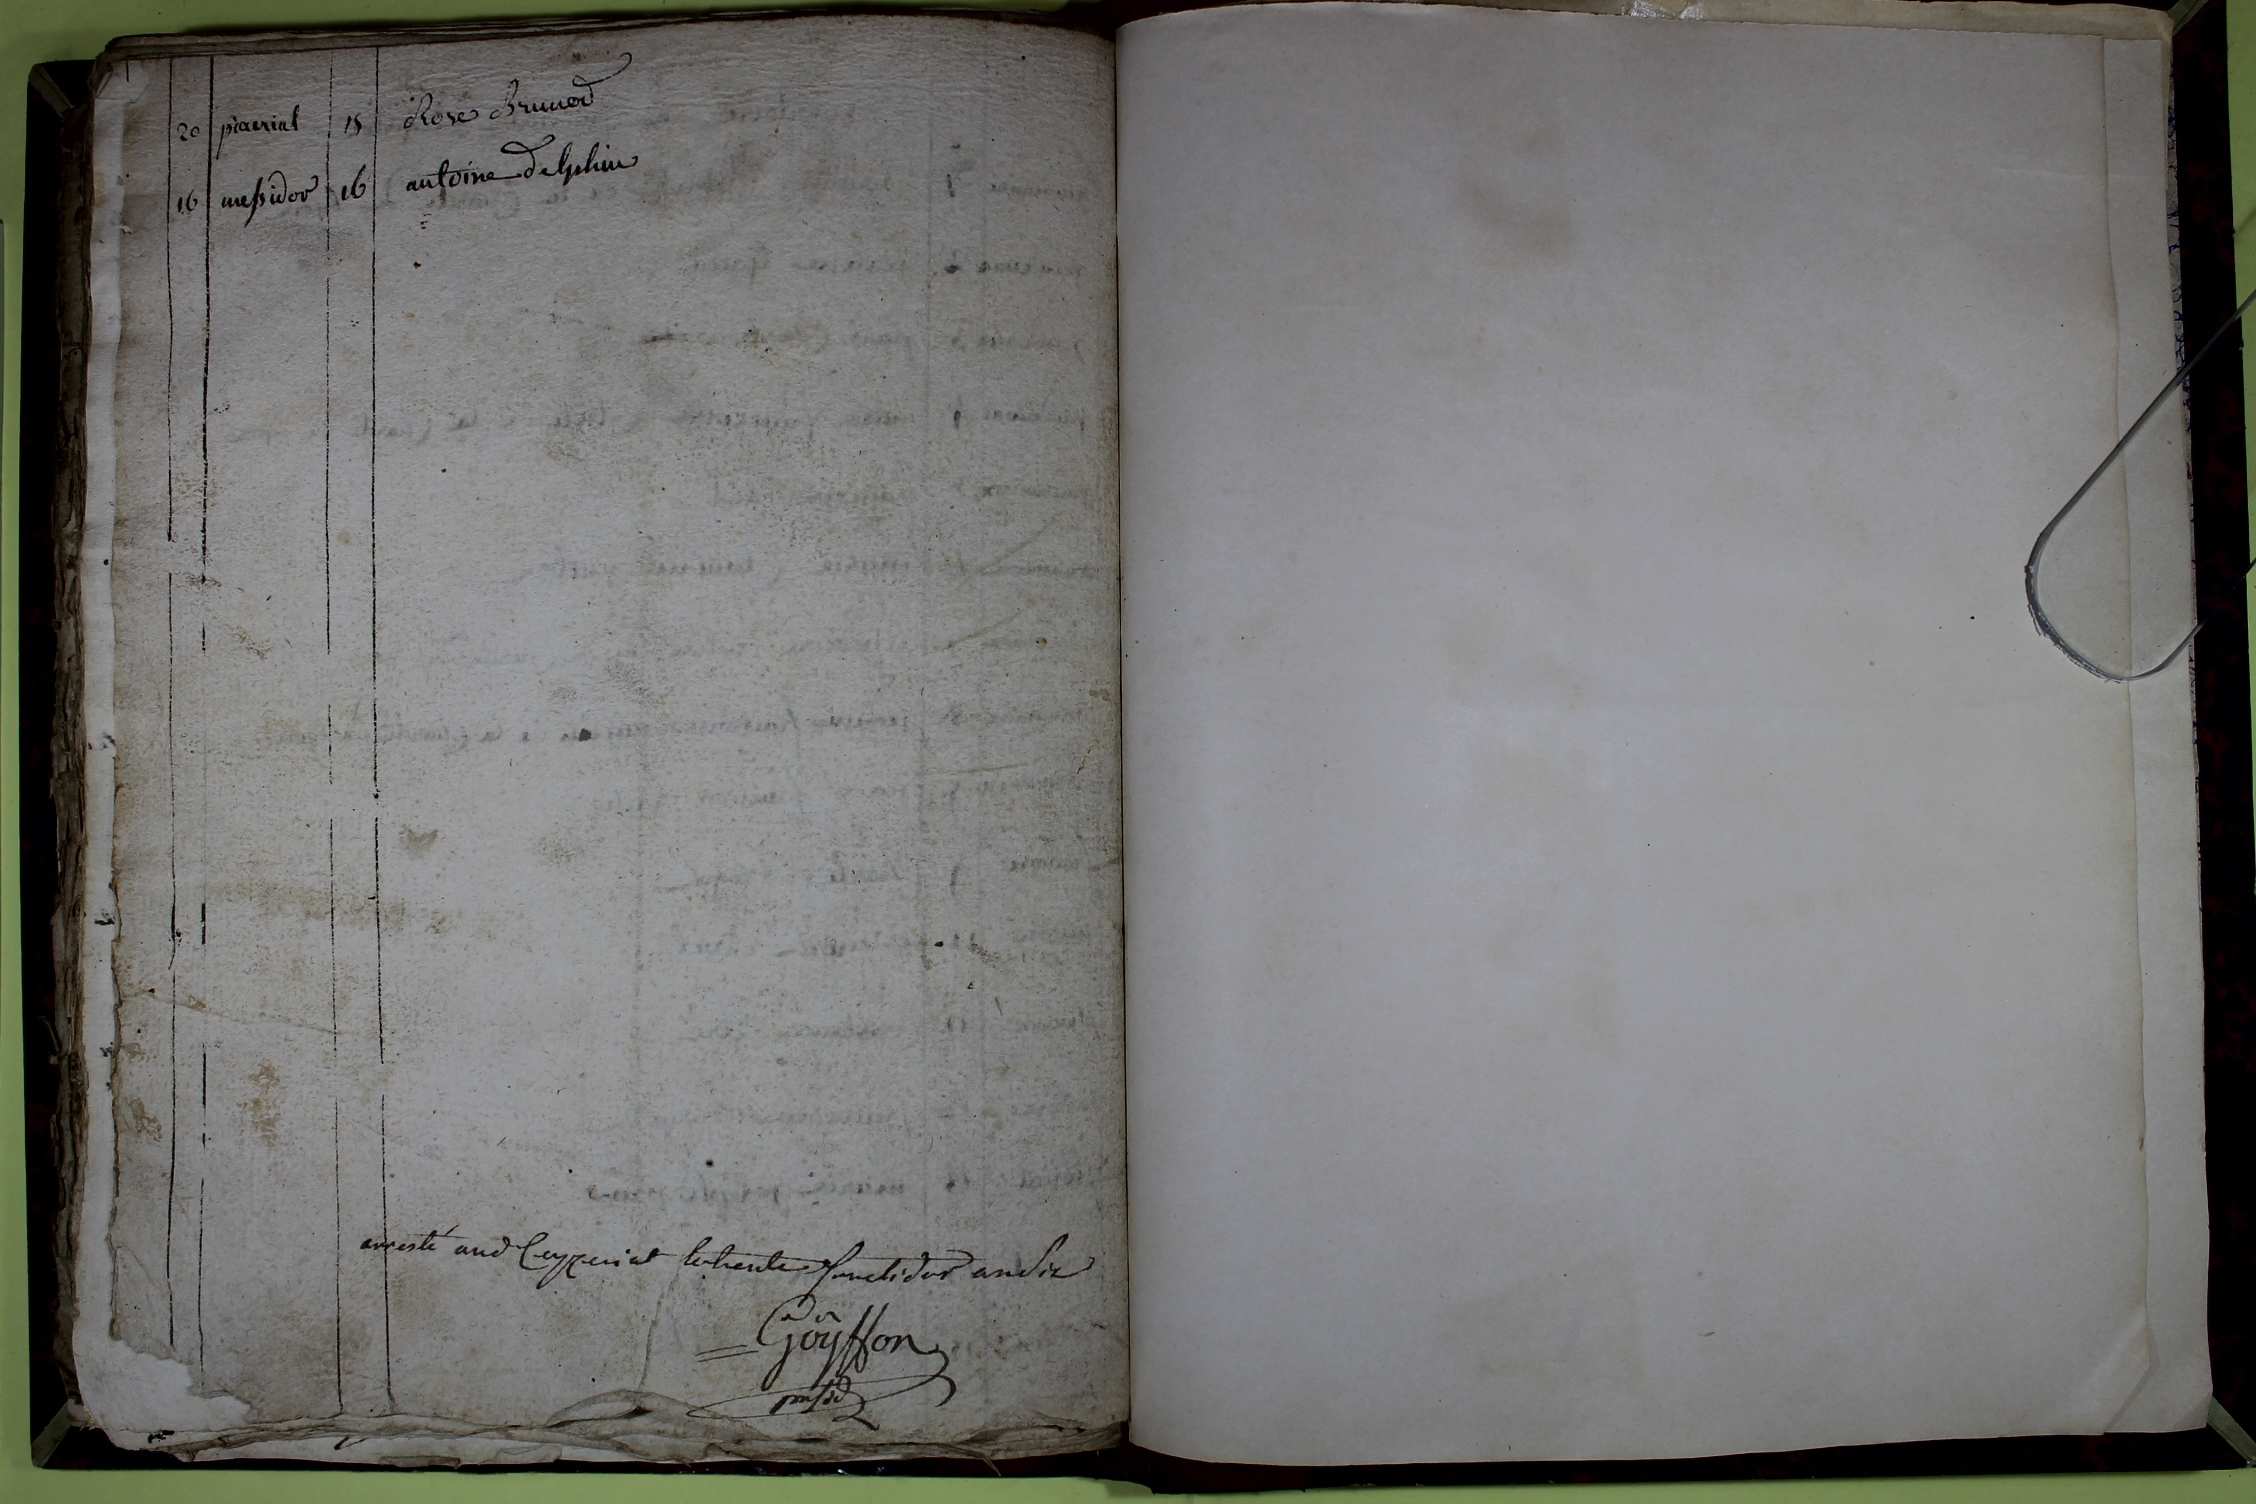 20 prairial 15 Rose Brunod
16 messidor 16 antoine delphin
arresté aud Ceyzeriat le trente fructidor an dix
Goÿffon